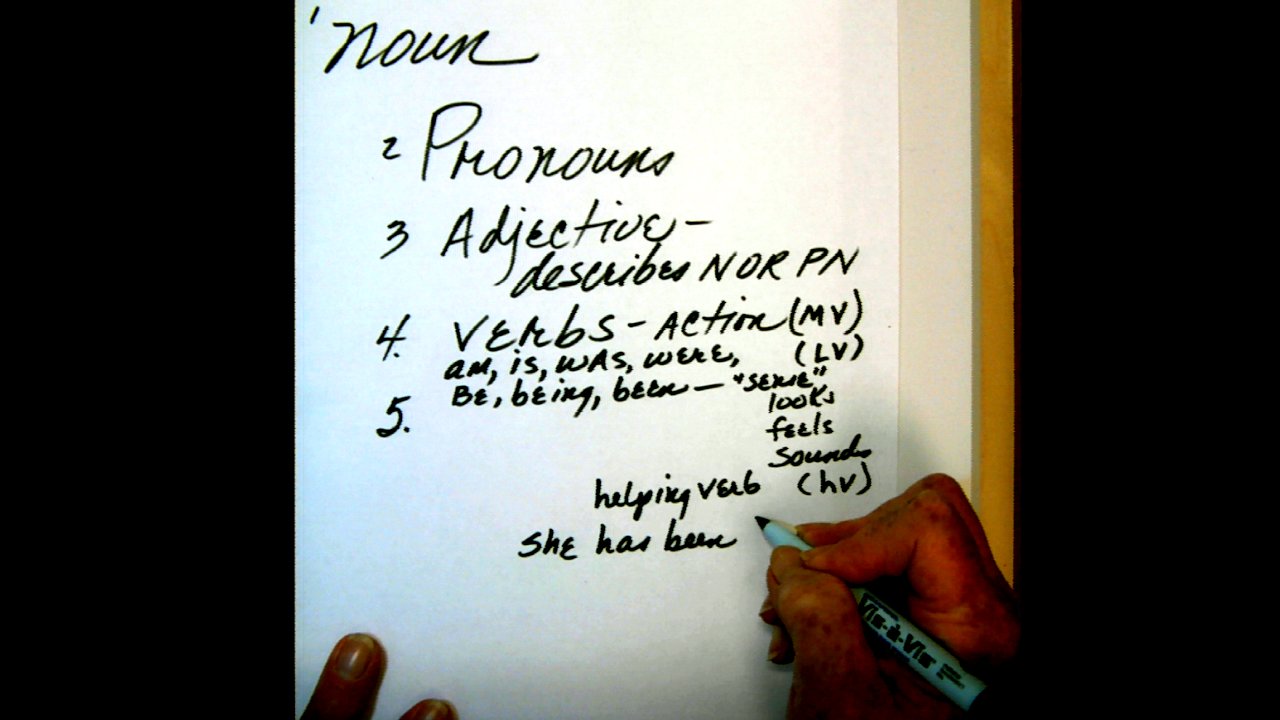 1 noun
2 Pronouns
3 Adjective -
describes N OR PN
4. VERbS - ACTION (MV)
am, is, WAS, WERE, (LV)
BE, bEing, bEEN — "SENSE"
looks
feels
5.
sounds
helping VERb (hV)
She has been
Vis-à-Vis